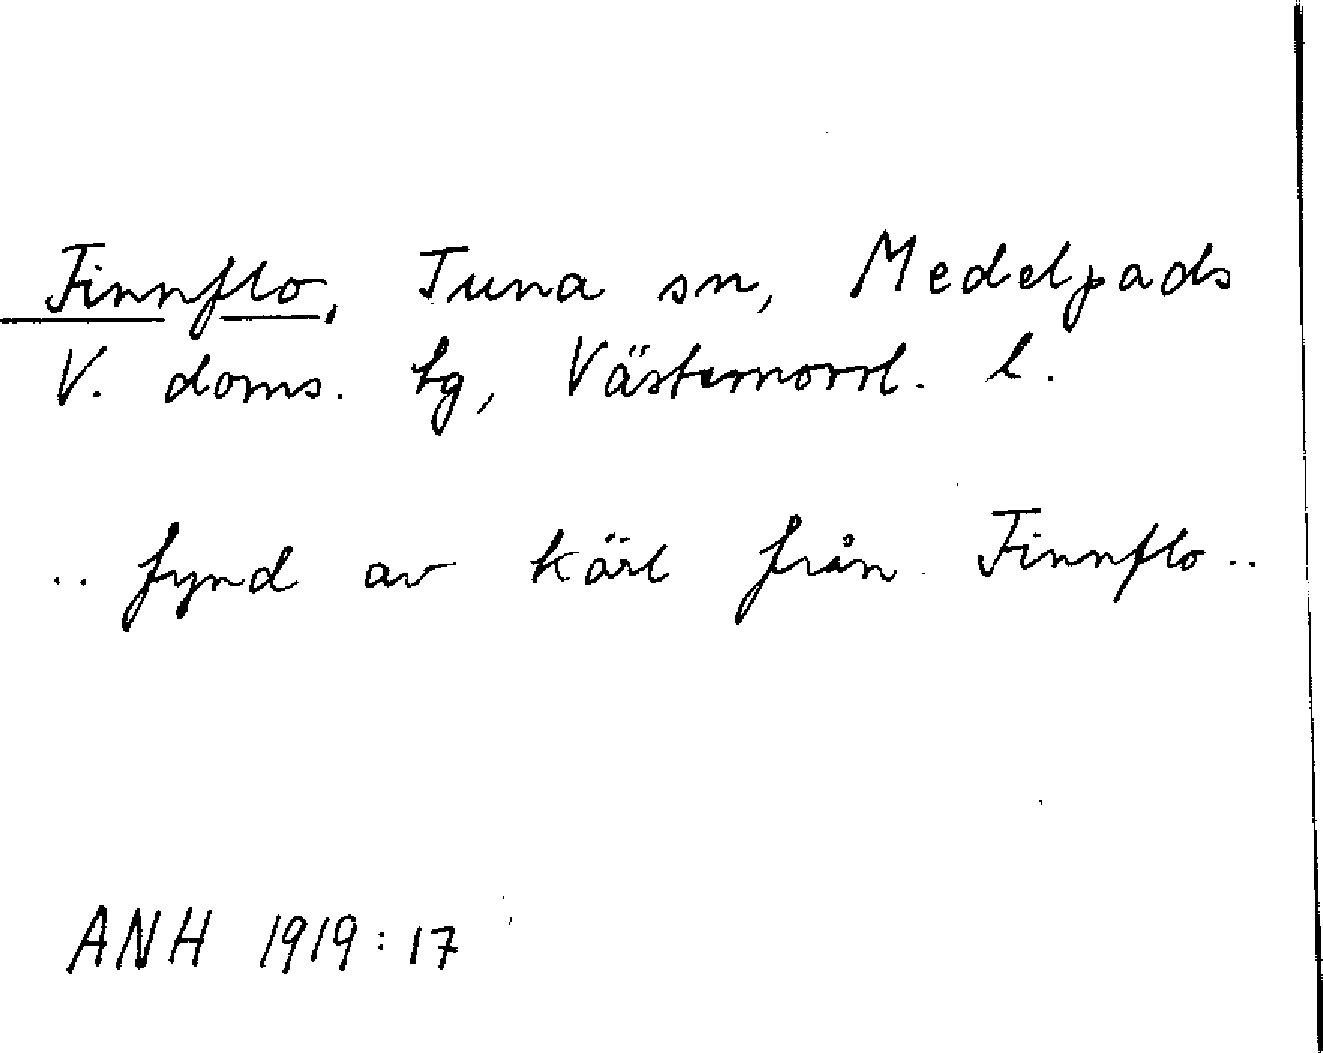 Finnflo, Tuna sn, Medelpads
V. doms. tg, Västernorrl. l.
.. fynd av kärl från Finnflo ..
ANH 1919:17